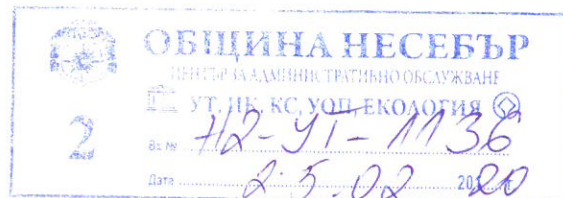 ОБЩИНА НЕСЕБЪР
ЦЕНТЪР ЗА АДМИНИСТРАТИВНО ОБСЛУЖВАНЕ
УТ, ИК, КС, УОП, ЕКОЛОГИЯ
2
Вх. № Н2-УТ-1136
Дата 25.02 2020